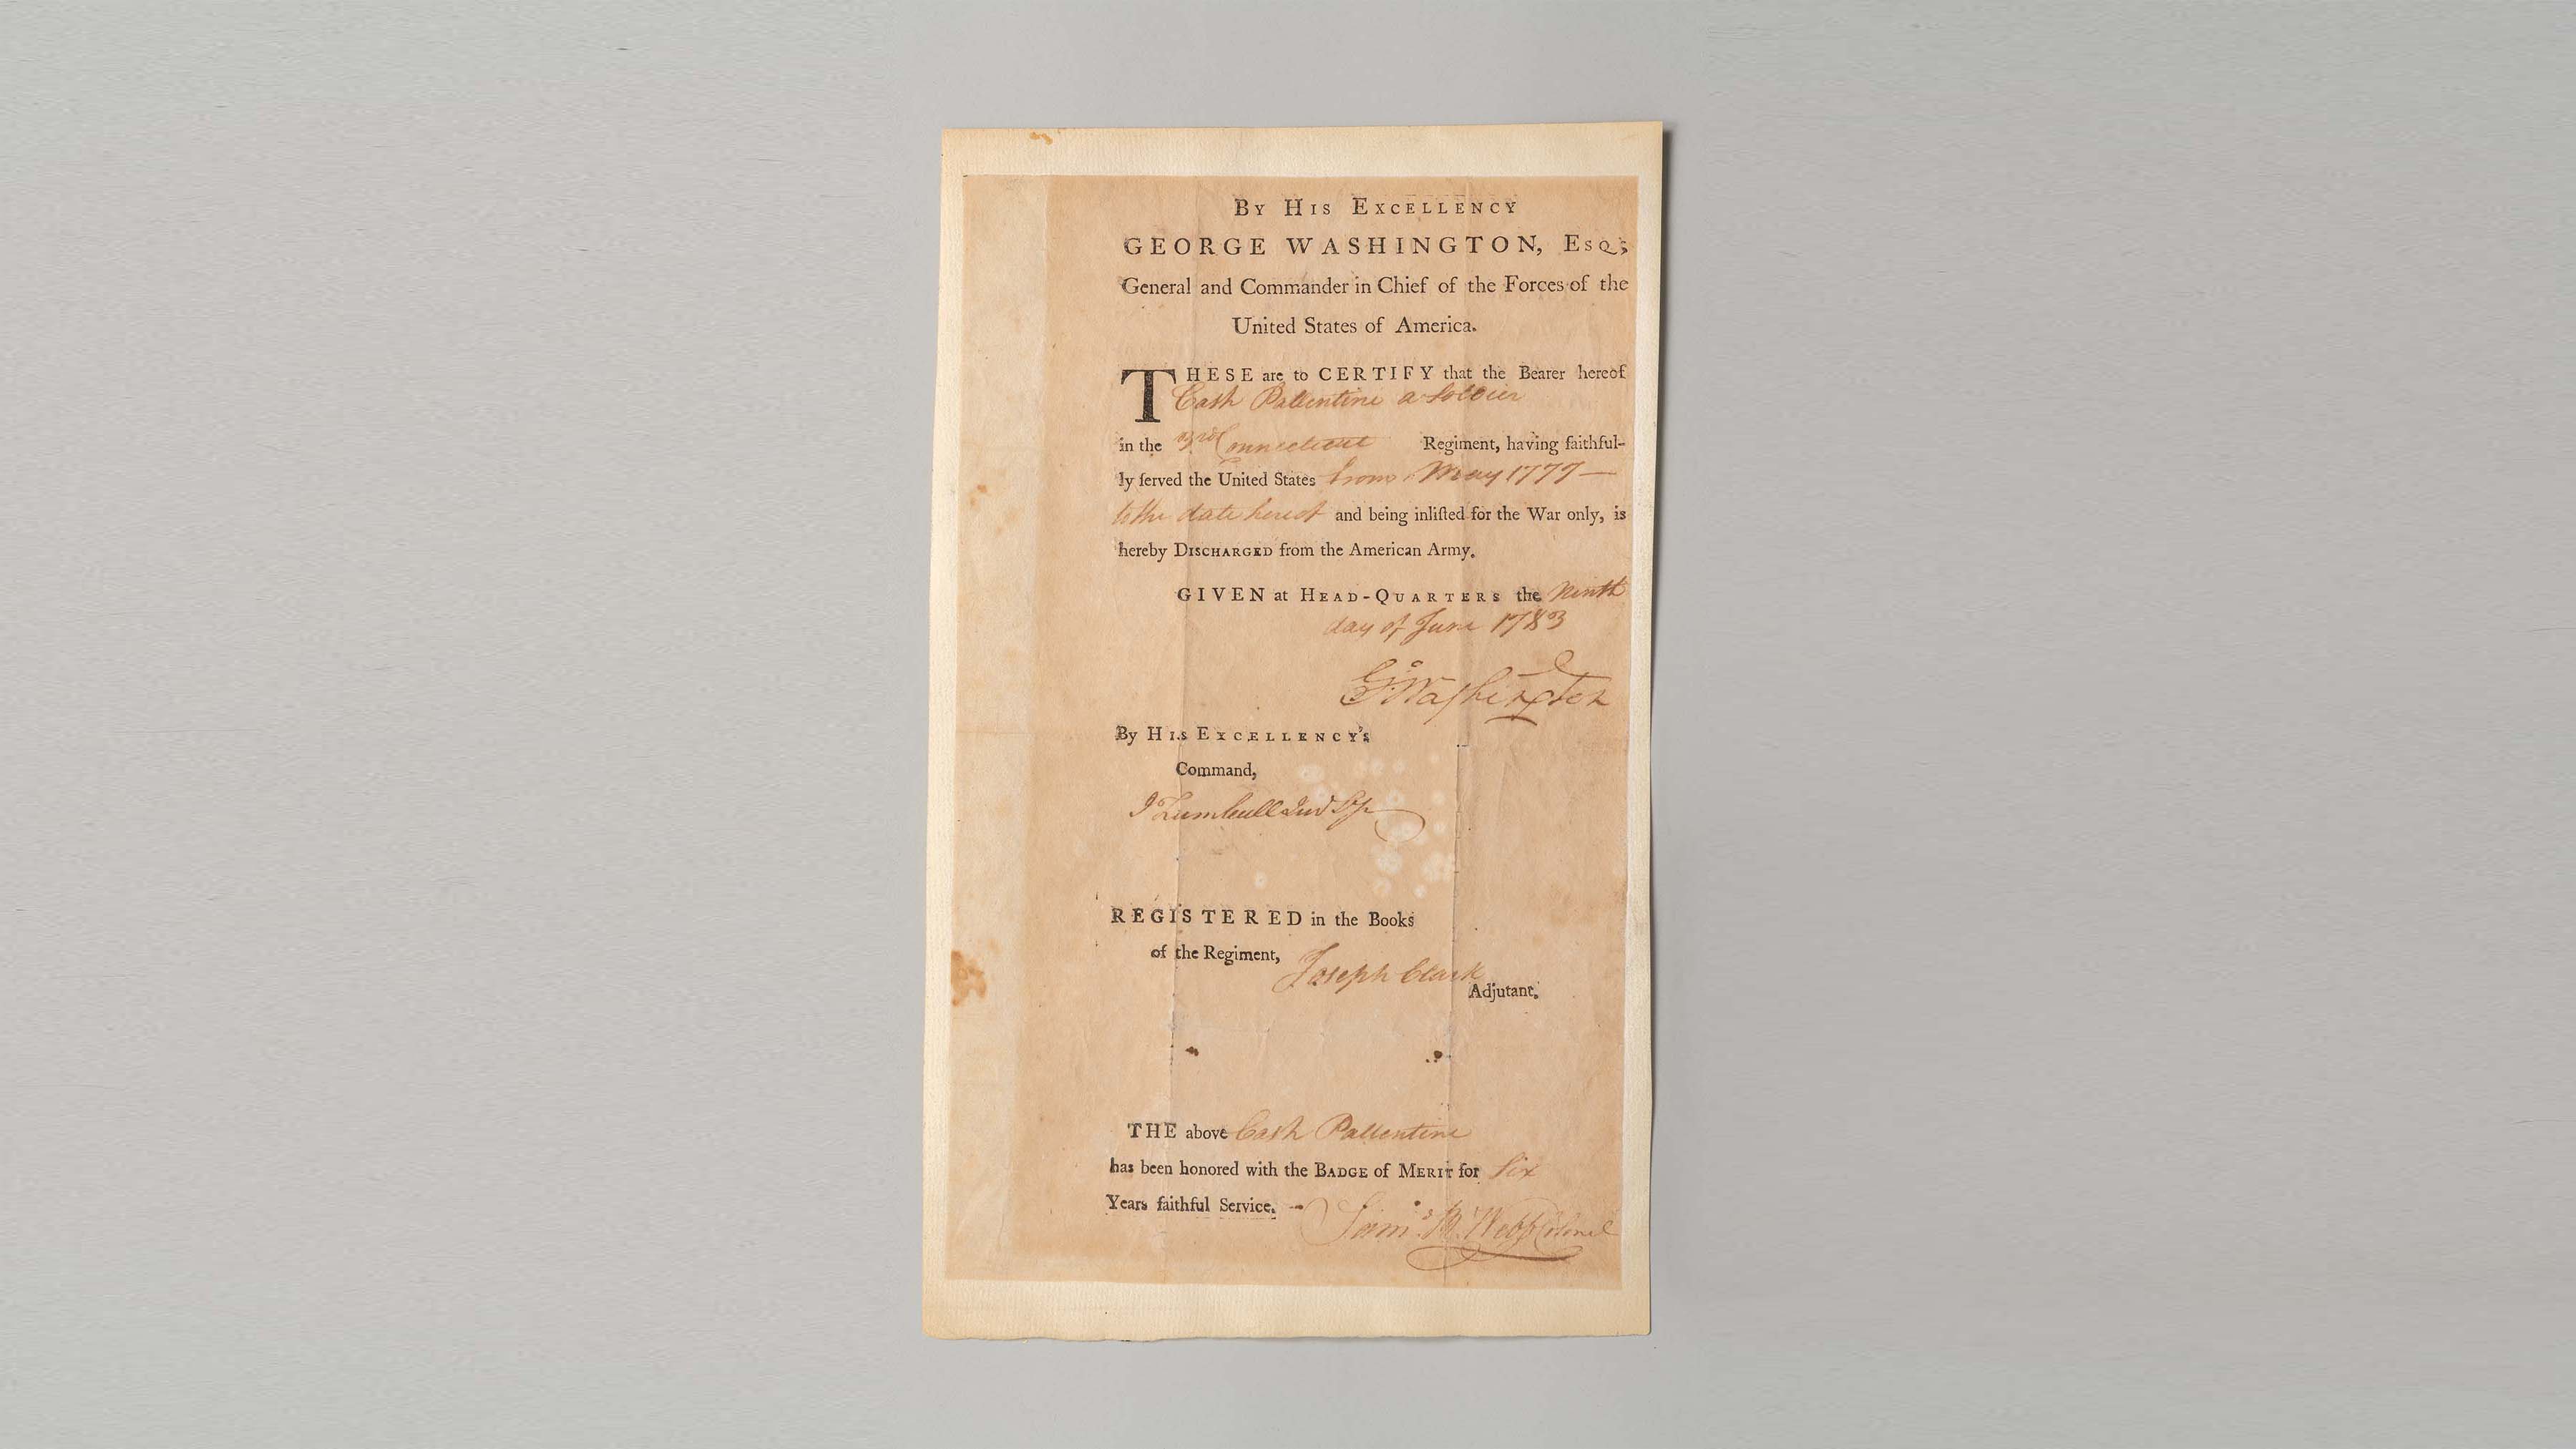 BY HIS EXCELLENCY
GEORGE WASHINGTON, ESQ;
General and Commander in Chief of the Forces of the
United States of America.
THESE are to CERTIFY that the Bearer hereof
Cash Pallentine a Soldier
in the 3rd Connecticut Regiment, having faithful-
ly ſerved the United States from May 1777 —
to the date hereof and being inliſted for the War only, is
hereby DISCHARGED from the American Army.
GIVEN at HEAD-QUARTERS the Ninth
day of June 1783
Go Washington
By HIS EXCELLENCY'S
Command,
J Trumbull Jun Sy
REGISTERED in the Books
of the Regiment,
Joseph Clark
Adjutant.
THE above Cash Pallentine
has been honored with the BADGE of MERIT for Six
Years faithful Service. -
Sam. B. Webb Colonel